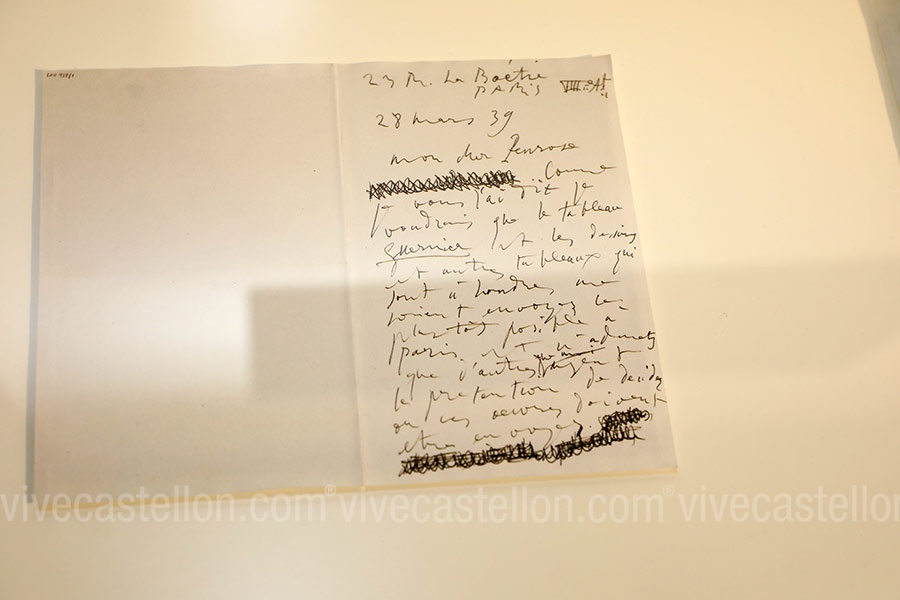 23 R. La Boétie
PARIS
28 mars 39
mon cher Penrose
Comme
je vous j'ai dit je
voudrais que le tableau
guernica et les dessins
et autres tableaux qui
sont à Londres me
soient envoyés le
plus tôt posible a
paris. et n'admets
que d'autres que moi
la pretention de decider
ou ces oeuvres doivent
etre envoyer
vivecastellon.com® vivecastellon.com® vivecastellon